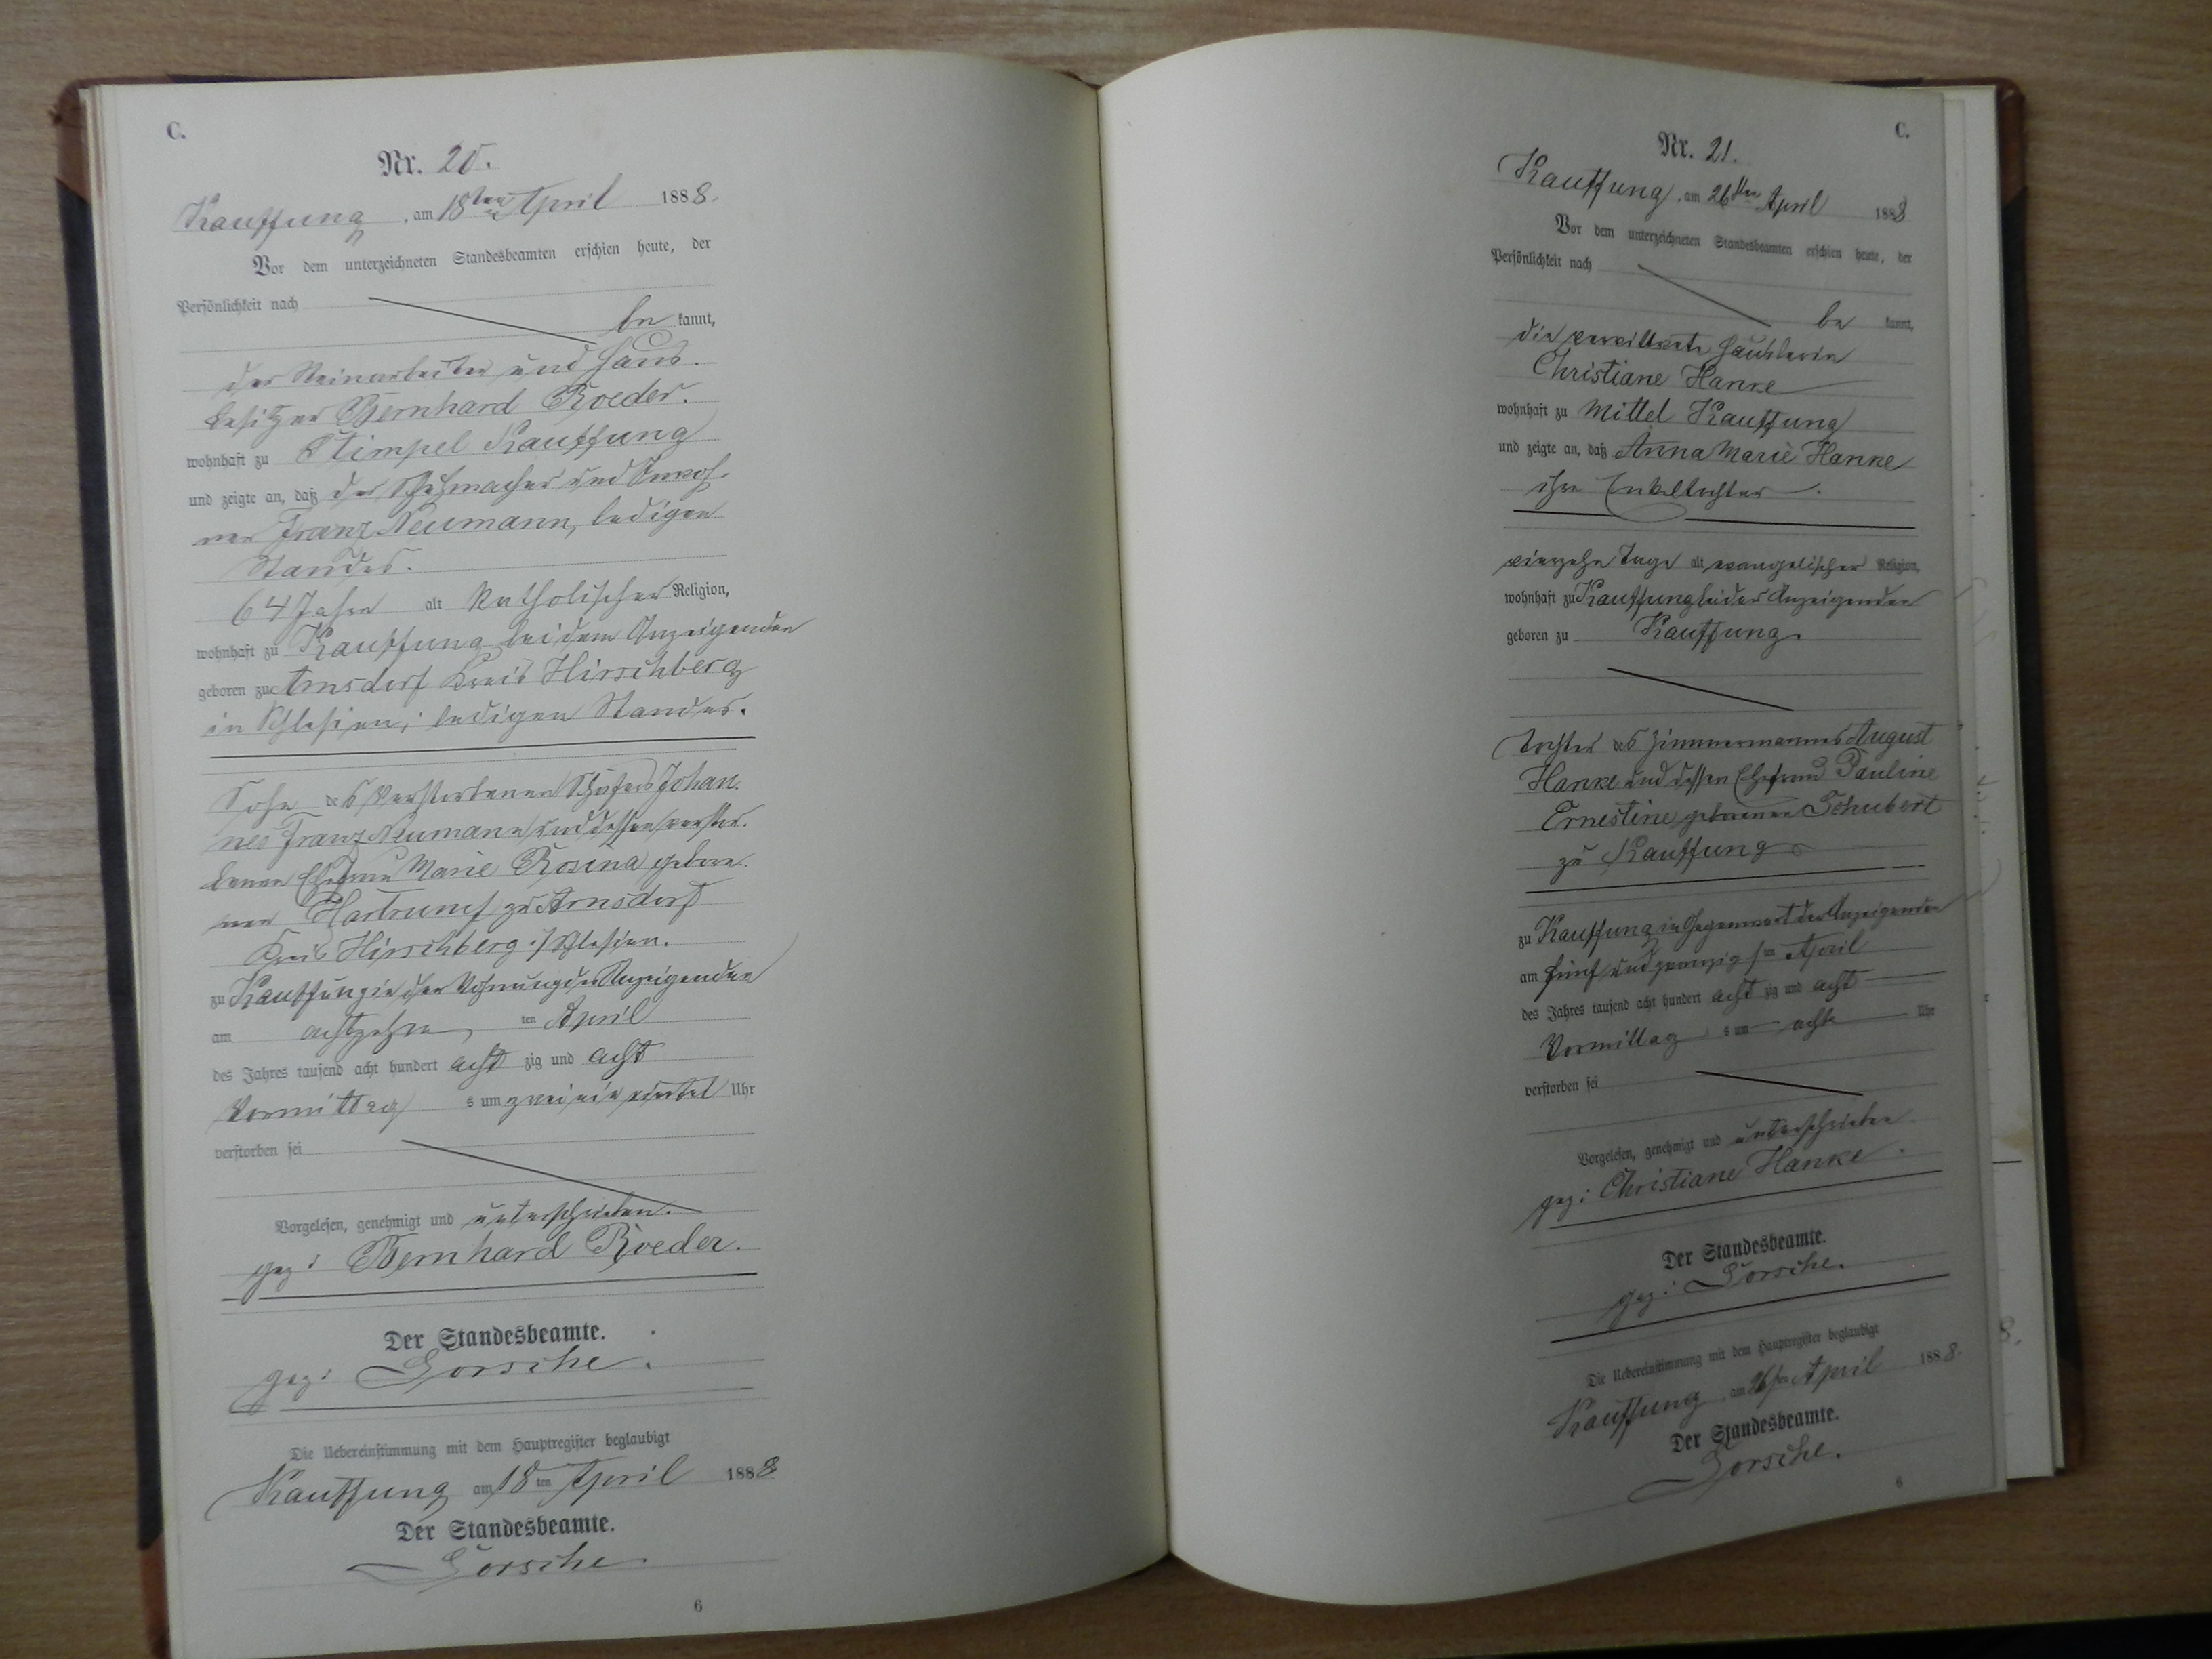 C.
Nr. 20.
Kauffung, am 18ten April 1888.
Vor dem unterzeichneten Standesbeamten erschien heute, der
Persönlichkeit nach
be kannt,
der Steinarbeiter und Haus-
besitzer Bernhard Roeder.
wohnhaft zu Stimpel Kauffung
und zeigte an, daß der Schuhmacher und Inwoh-
ner Franz Neumann, ledigen
Standes.
64 Jahre alt katholischer Religion,
wohnhaft zu Kauffung bei dem Anzeigenden
geboren zu Arnsdorf Kreis Hirschberg
in Schlesien, ledigen Standes.
Sohn des verstorbenen Schäfers Johan-
nes Franz Neumann und dessen verstor-
benen Ehefrau Marie Rosina gebore-
nen Hartrumf zu Arnsdorf
Kreis Hirschberg i/Schlesien.
zu Kauffung in der Wohnung des Anzeigenden
am achtzehn ten April
des Jahres tausend acht hundert acht zig und acht
Vormittag s um zwei ein viertel Uhr
verstorben sei
Vorgelesen, genehmigt und unterschrieben.
gez: Bernhard Roeder.
Der Standesbeamte.
gez: Gorsche.
Die Uebereinstimmung mit dem Hauptregister beglaubigt
Kauffung am 18ten April 1888
Der Standesbeamte.
Gorsche
6
C.
Nr. 21.
Kauffung, am 26ten April 1888
Vor dem unterzeichneten Standesbeamten erschien heute, der
Persönlichkeit nach
be kannt,
die verwittwete Häuslerin
Christiane Hanke
wohnhaft zu Mittel Kauffung
und zeigte an, daß Anna Marie Hanke
ihre Enkeltochter.
vierzehn Tage alt evangelischer Religion,
wohnhaft zu Kauffung bei der Anzeigenden
geboren zu Kauffung.
Tochter des Zimmermannes August
Hanke und dessen Ehefrau Pauline
Ernestine geborenen Schubert
zu Kauffung
zu Kauffung in Gegenwart der Anzeigenden
am fünf und zwanzig sten April
des Jahres tausend acht hundert acht zig und acht
Vormittag s um acht Uhr
verstorben sei
Vorgelesen, genehmigt und unterschrieben.
gez: Christiane Hanke.
Der Standesbeamte.
gez: Gorsche.
Die Uebereinstimmung mit dem Hauptregister beglaubigt
Kauffung, am 26ten April 1888.
Der Standesbeamte.
Gorsche.
6
8.